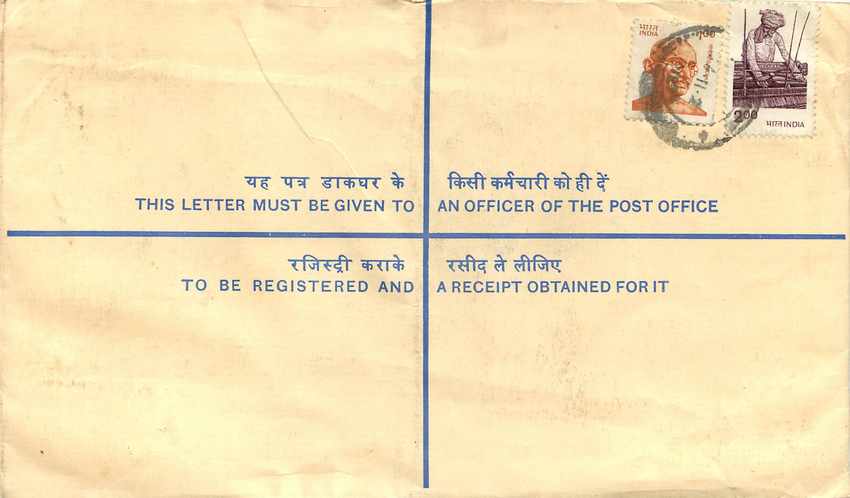 भारत
INDIA
1.00
2.00
भारत INDIA
यह पत्र डाकघर के किसी कर्मचारी को ही दें
THIS LETTER MUST BE GIVEN TO AN OFFICER OF THE POST OFFICE
रजिस्ट्री कराके रसीद ले लीजिए
TO BE REGISTERED AND A RECEIPT OBTAINED FOR IT